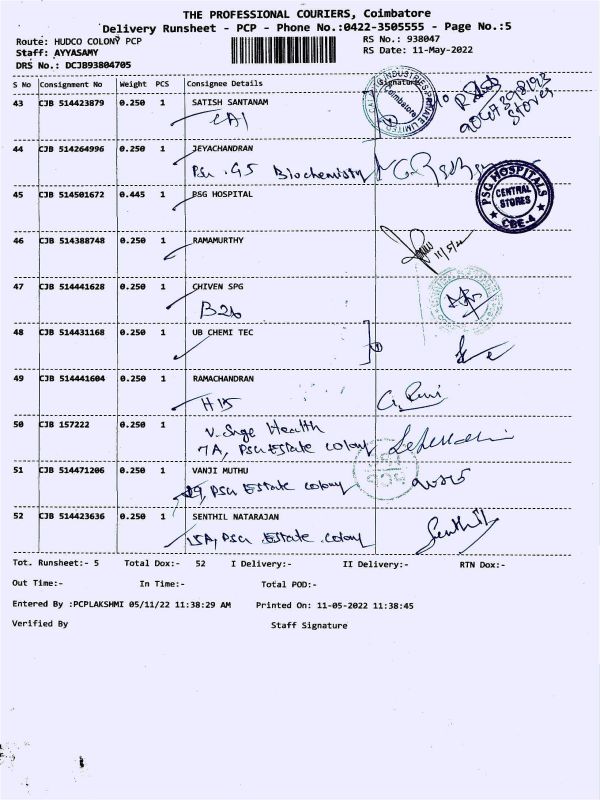 THE PROFESSIONAL COURIERS, Coimbatore
Delivery Runsheet - PCP - Phone No.:0422-3505555 - Page No.:5
Route: HUDCO COLONY PCP
RS No.: 938047
Staff: AYYASAMY
RS Date: 11-May-2022
DRS No.: DCJB93804705
S No Consignment No Weight PCS Consignee Details Signature
43 CJB 514423879 0.250 1 SATISH SANTANAM
44 CJB 514264996 0.250 1 JEYACHANDRAN
Biochemistry
45 CJB 514501672 0.445 1 PSG HOSPITAL
PSG HOSPITALS
CENTRAL
STORES
CBE-4
46 CJB 514388748 0.250 1 RAMAMURTHY
11/5/22
47 CJB 514441628 0.250 1 CHIVEN SPG
B26
48 CJB 514431168 0.250 1 UB CHEMI TEC
49 CJB 514441604 0.250 1 RAMACHANDRAN
H15
50 CJB 157222 0.250 1
Health
7A, PSG Estate colony
51 CJB 514471206 0.250 1 VANJI MUTHU
PSG Estate colony
52 CJB 514423636 0.250 1 SENTHIL NATARAJAN
15A, PSG Estate colony Senthil
Tot. Runsheet:- 5 Total Dox:- 52 I Delivery:- II Delivery:- RTN Dox:-
Out Time:- In Time:- Total POD:-
Entered By :PCPLAKSHMI 05/11/22 11:38:29 AM Printed On: 11-05-2022 11:38:45
Verified By Staff Signature